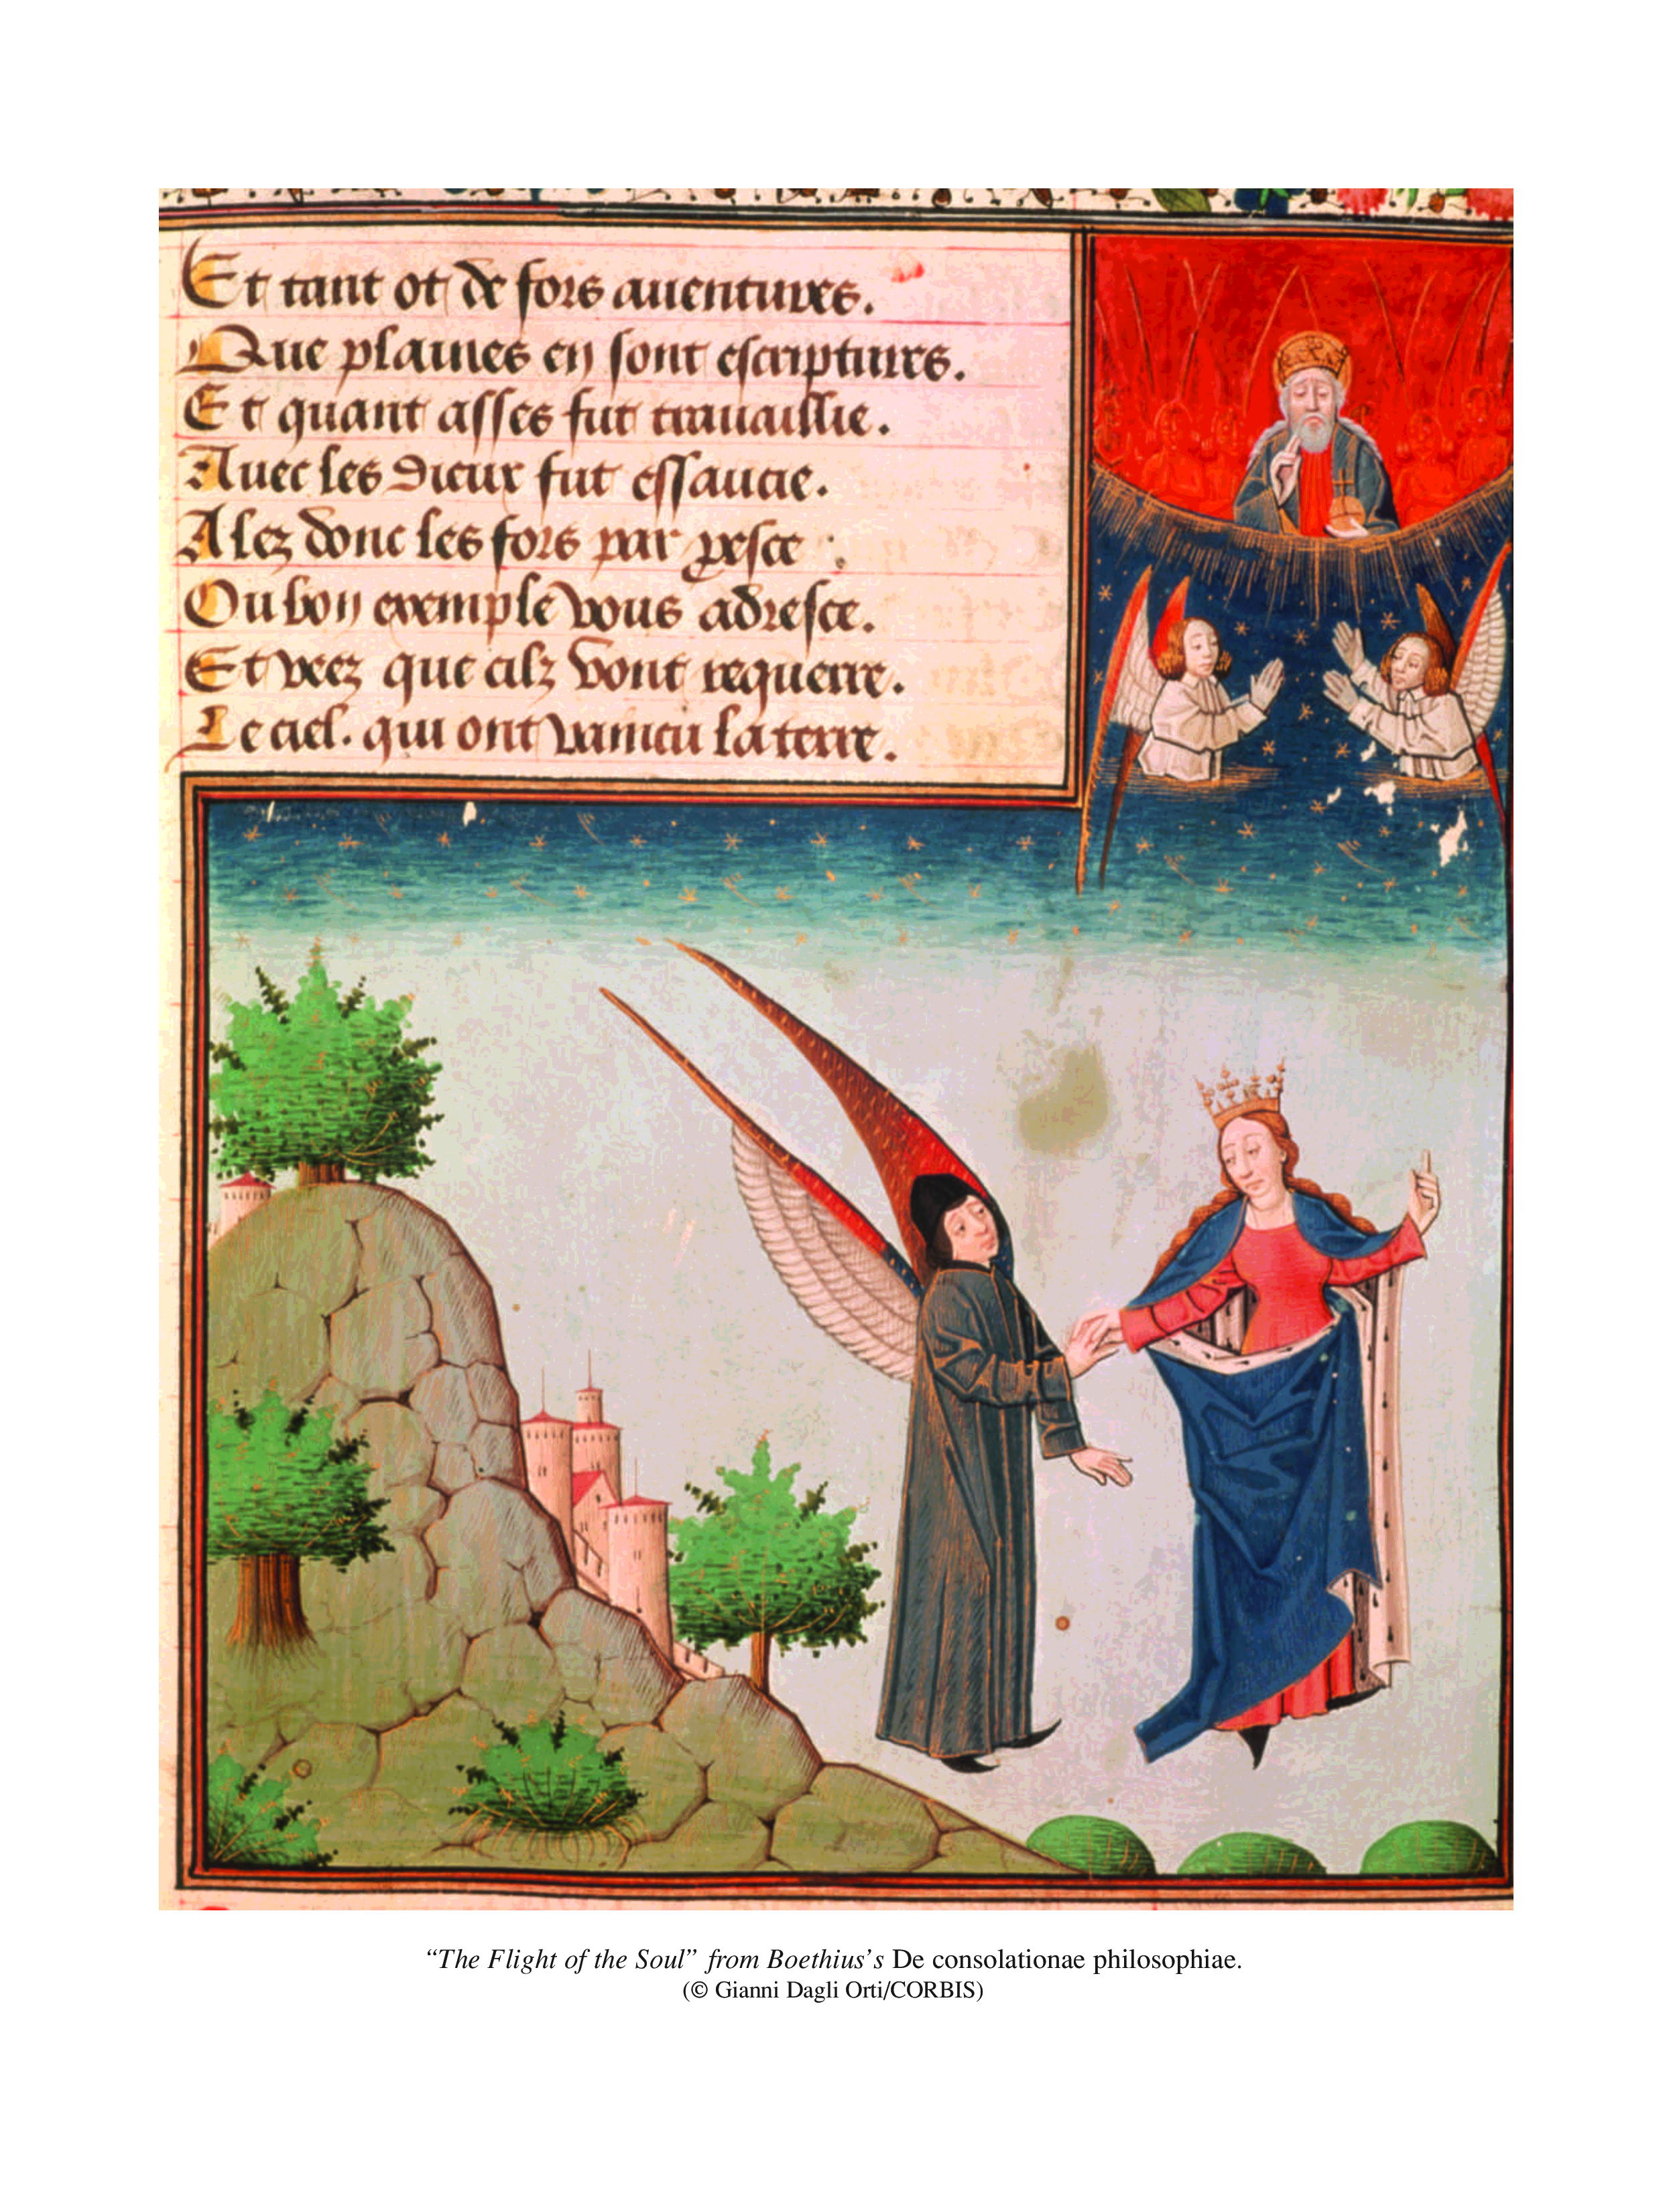 Et tant ot de fors auentures.
Que plaines en sont escriptures.
Et quant asses fut trauaillie.
Auec les dieux fut essaucie.
Alez donc les fors par presce
Ou bon exemple vous adresce.
Et veez que cilz vont requerre.
Le ciel. qui ont vaincu la terre.
“The Flight of the Soul” from Boethius’s De consolationae philosophiae.
(© Gianni Dagli Orti/CORBIS)